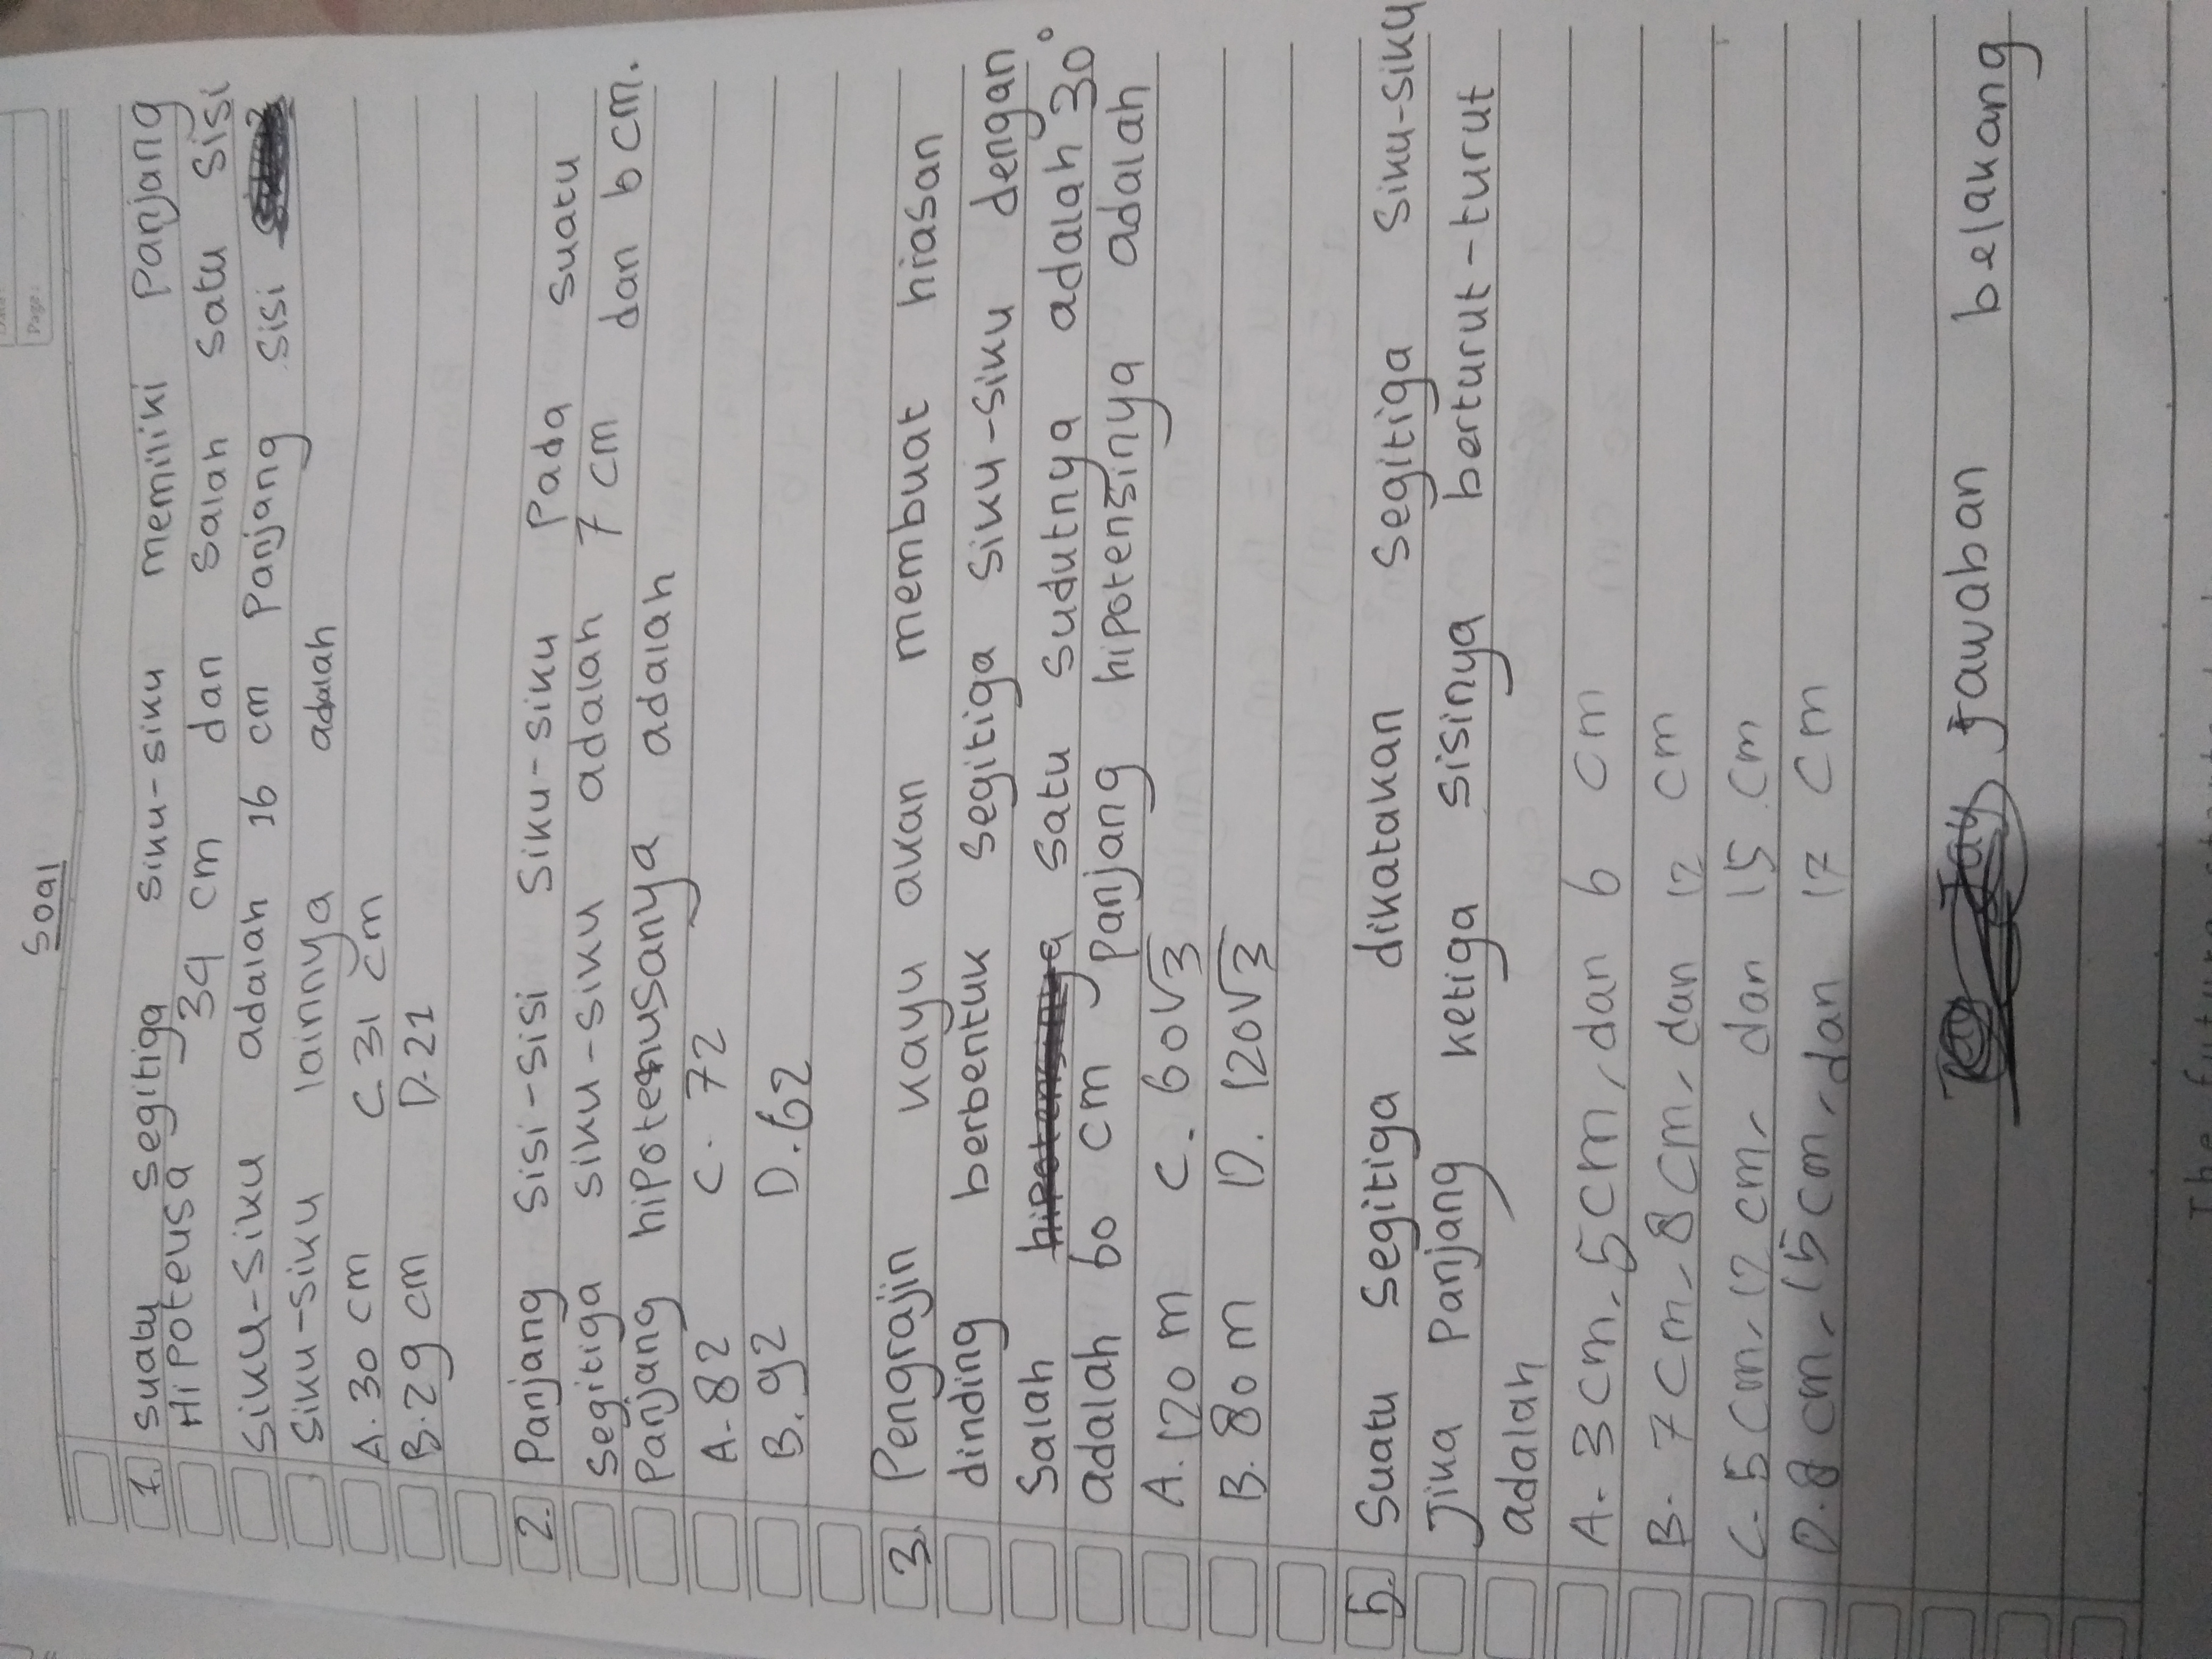 Page:
Soal
1. Suatu segitiga siku-siku memiliki Panjang
Hipoteusa 34 cm dan salah satu sisi
Siku-siku adalah 16 cm Panjang sisi
Siku-siku lainnya adalah
A. 30 cm C. 31 cm
B. 29 cm D. 21
2. Panjang sisi-sisi siku-siku Pada suatu
Segitiga siku-siku adalah 7 cm dan 6 cm.
Panjang hipotenusanya adalah
A. 82 C. 72
B. 92 D. 62
3. Pengrajin kayu akan membuat hiasan
dinding berbentuk segitiga siku-siku dengan
Salah satu sudutnya adalah 30°
adalah 60 cm Panjang hipotensinya adalah
A. 120 m C. 60√3
B. 80 m D. 120√3
5. Suatu segitiga dikatakan segitiga siku-siku
Jika Panjang ketiga sisinya berturut-turut
adalah
A. 3 cm, 5 cm, dan 6 cm
B. 7 cm, 8 cm, dan 12 cm
C. 5 cm, 12 cm, dan 15 cm
D. 8 cm, 15 cm, dan 17 cm
Jawaban belakang
The future starts